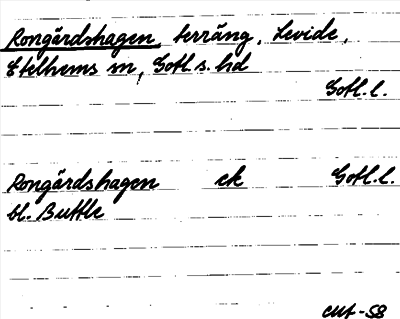 Rongårdshagen, terräng, Levide,
Etelhems sn, Gotl. s. hd
Gotl. l.
Rongårdshagen ek Gotl. l.
bl. Buttle